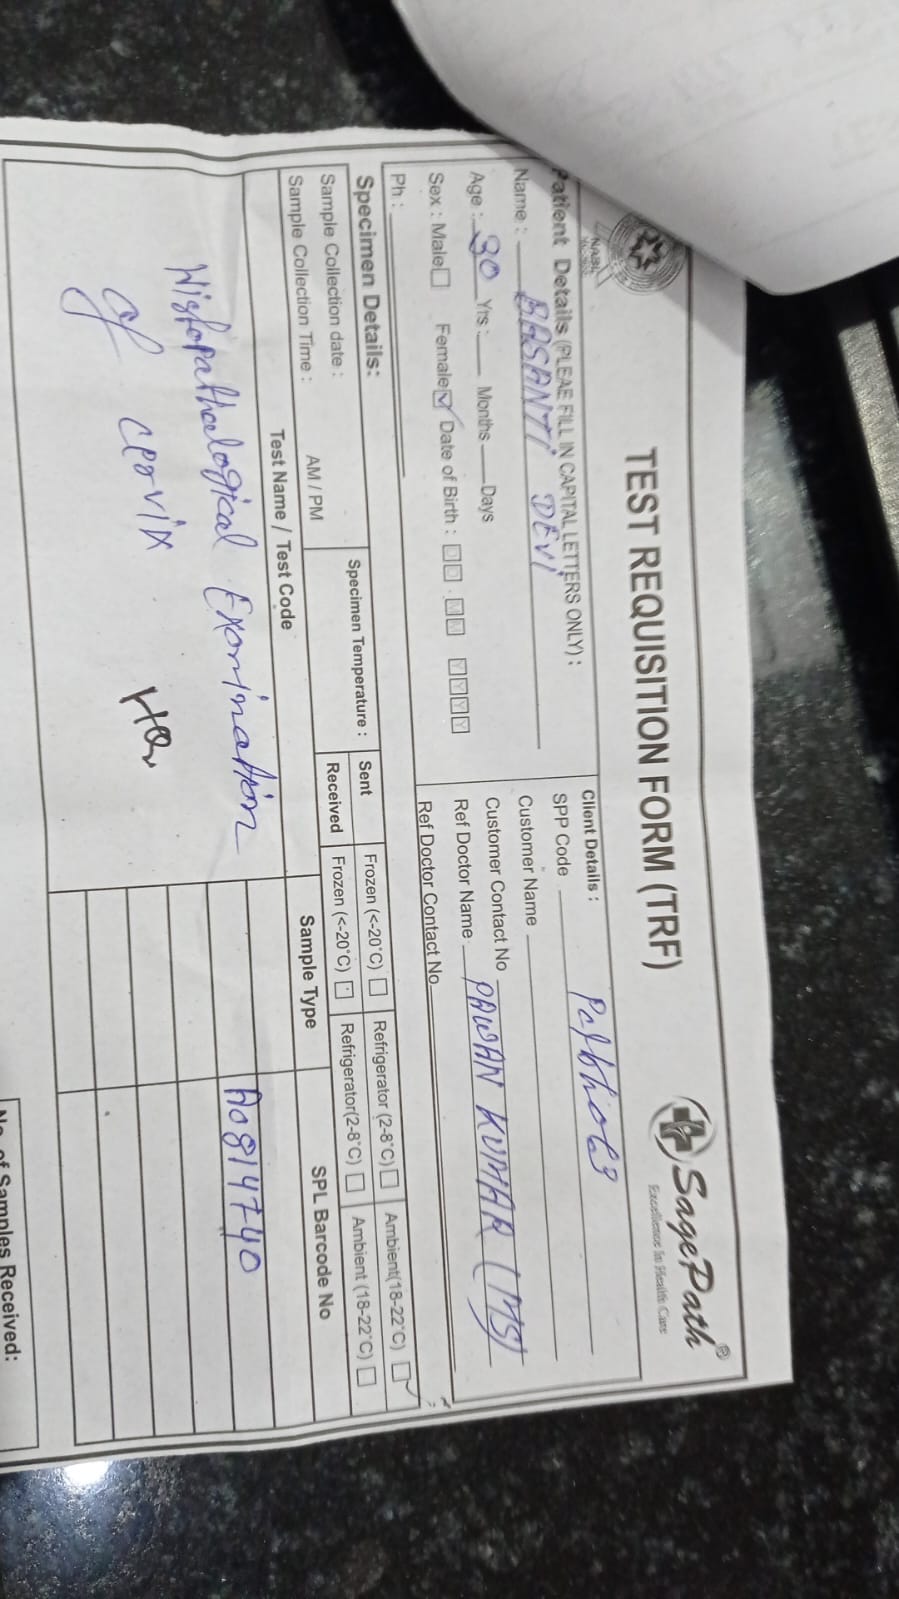 TEST REQUISITION FORM (TRF)
SagePath®
Excellence In Health Care
NABL
Patient Details (PLEAE FILL IN CAPITAL LETTERS ONLY) :
Name : BASANTI DEVI
Age : 30 Yrs : Months Days
Sex : Male Female Date of Birth : D D M M Y Y Y Y
Ph :
Client Details :
SPP Code
Customer Name
Customer Contact No
Ref Doctor Name PAWAN KUMAR
Ref Doctor Contact No
Specimen Details:
Sample Collection date :
Sample Collection Time : AM / PM
Specimen Temperature :
Sent Frozen (<-20°C) Refrigerator (2-8°C) Ambient(18-22°C)
Received Frozen (<-20°C) Refrigerator(2-8°C) Ambient (18-22°C)
Test Name / Test Code Sample Type SPL Barcode No
Histopathological Examination A0814740
of cervix
of Samples Received: